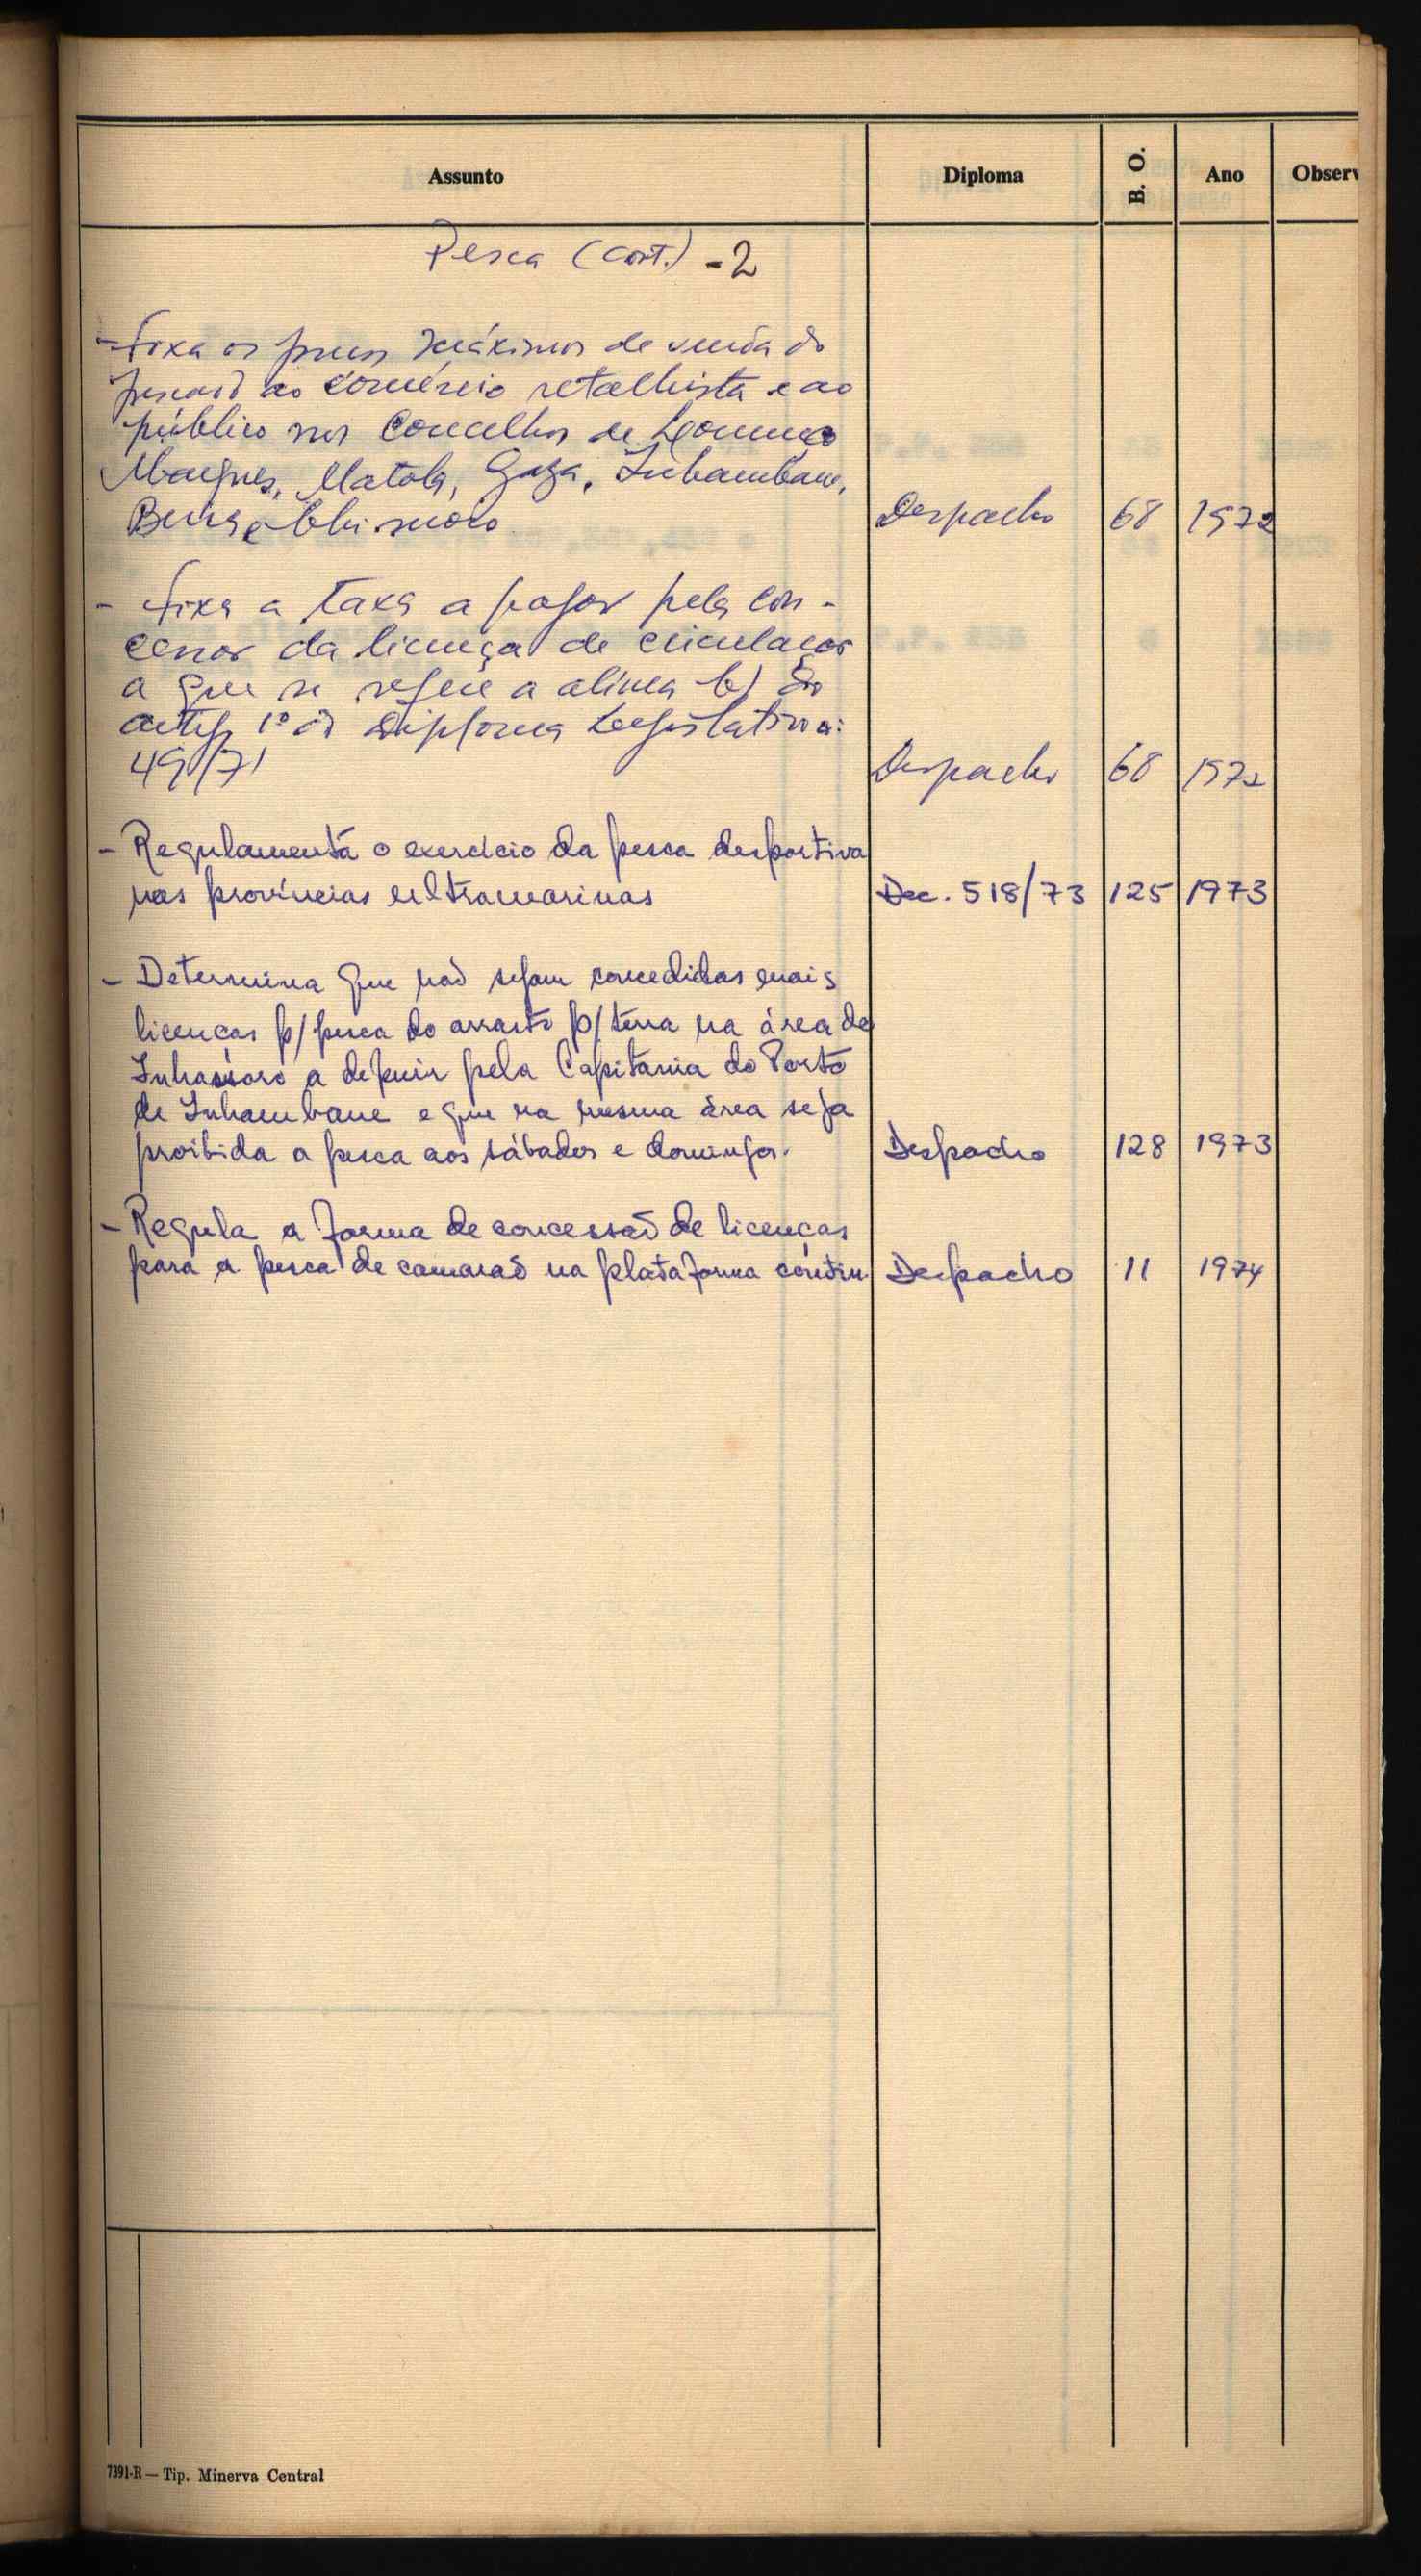 Assunto Diploma B. O. Ano Observ
Pesca (cont.) - 2
- Fixa os preços máximos de venda do
pescado ao comércio retalhista e ao
público nos Concelhos de Lourenço
Marques, Matola, Gaza, Inhambane,
Beira e Chimoio Despacho 68 1972
- Fixa a taxa a pagar pela con-
cessão da licença de circulação
a que se refere a alínea b) do
artigo 1º do Diploma Legislativo
49/71 Despacho 68 1972
- Regulamenta o exercício da pesca desportiva
nas províncias ultramarinas Dec. 518/73 125 1973
- Determina que não sejam concedidas mais
licenças p/ pesca do arrasto p/ terra na área de
Inhassoro a definir pela Capitania do Porto
de Inhambane e que na mesma área seja
proibida a pesca aos sábados e domingos. Despacho 128 1973
- Regula a forma de concessão de licenças
para a pesca de camarão na plataforma contin. Despacho 11 1974
7391-R — Tip. Minerva Central